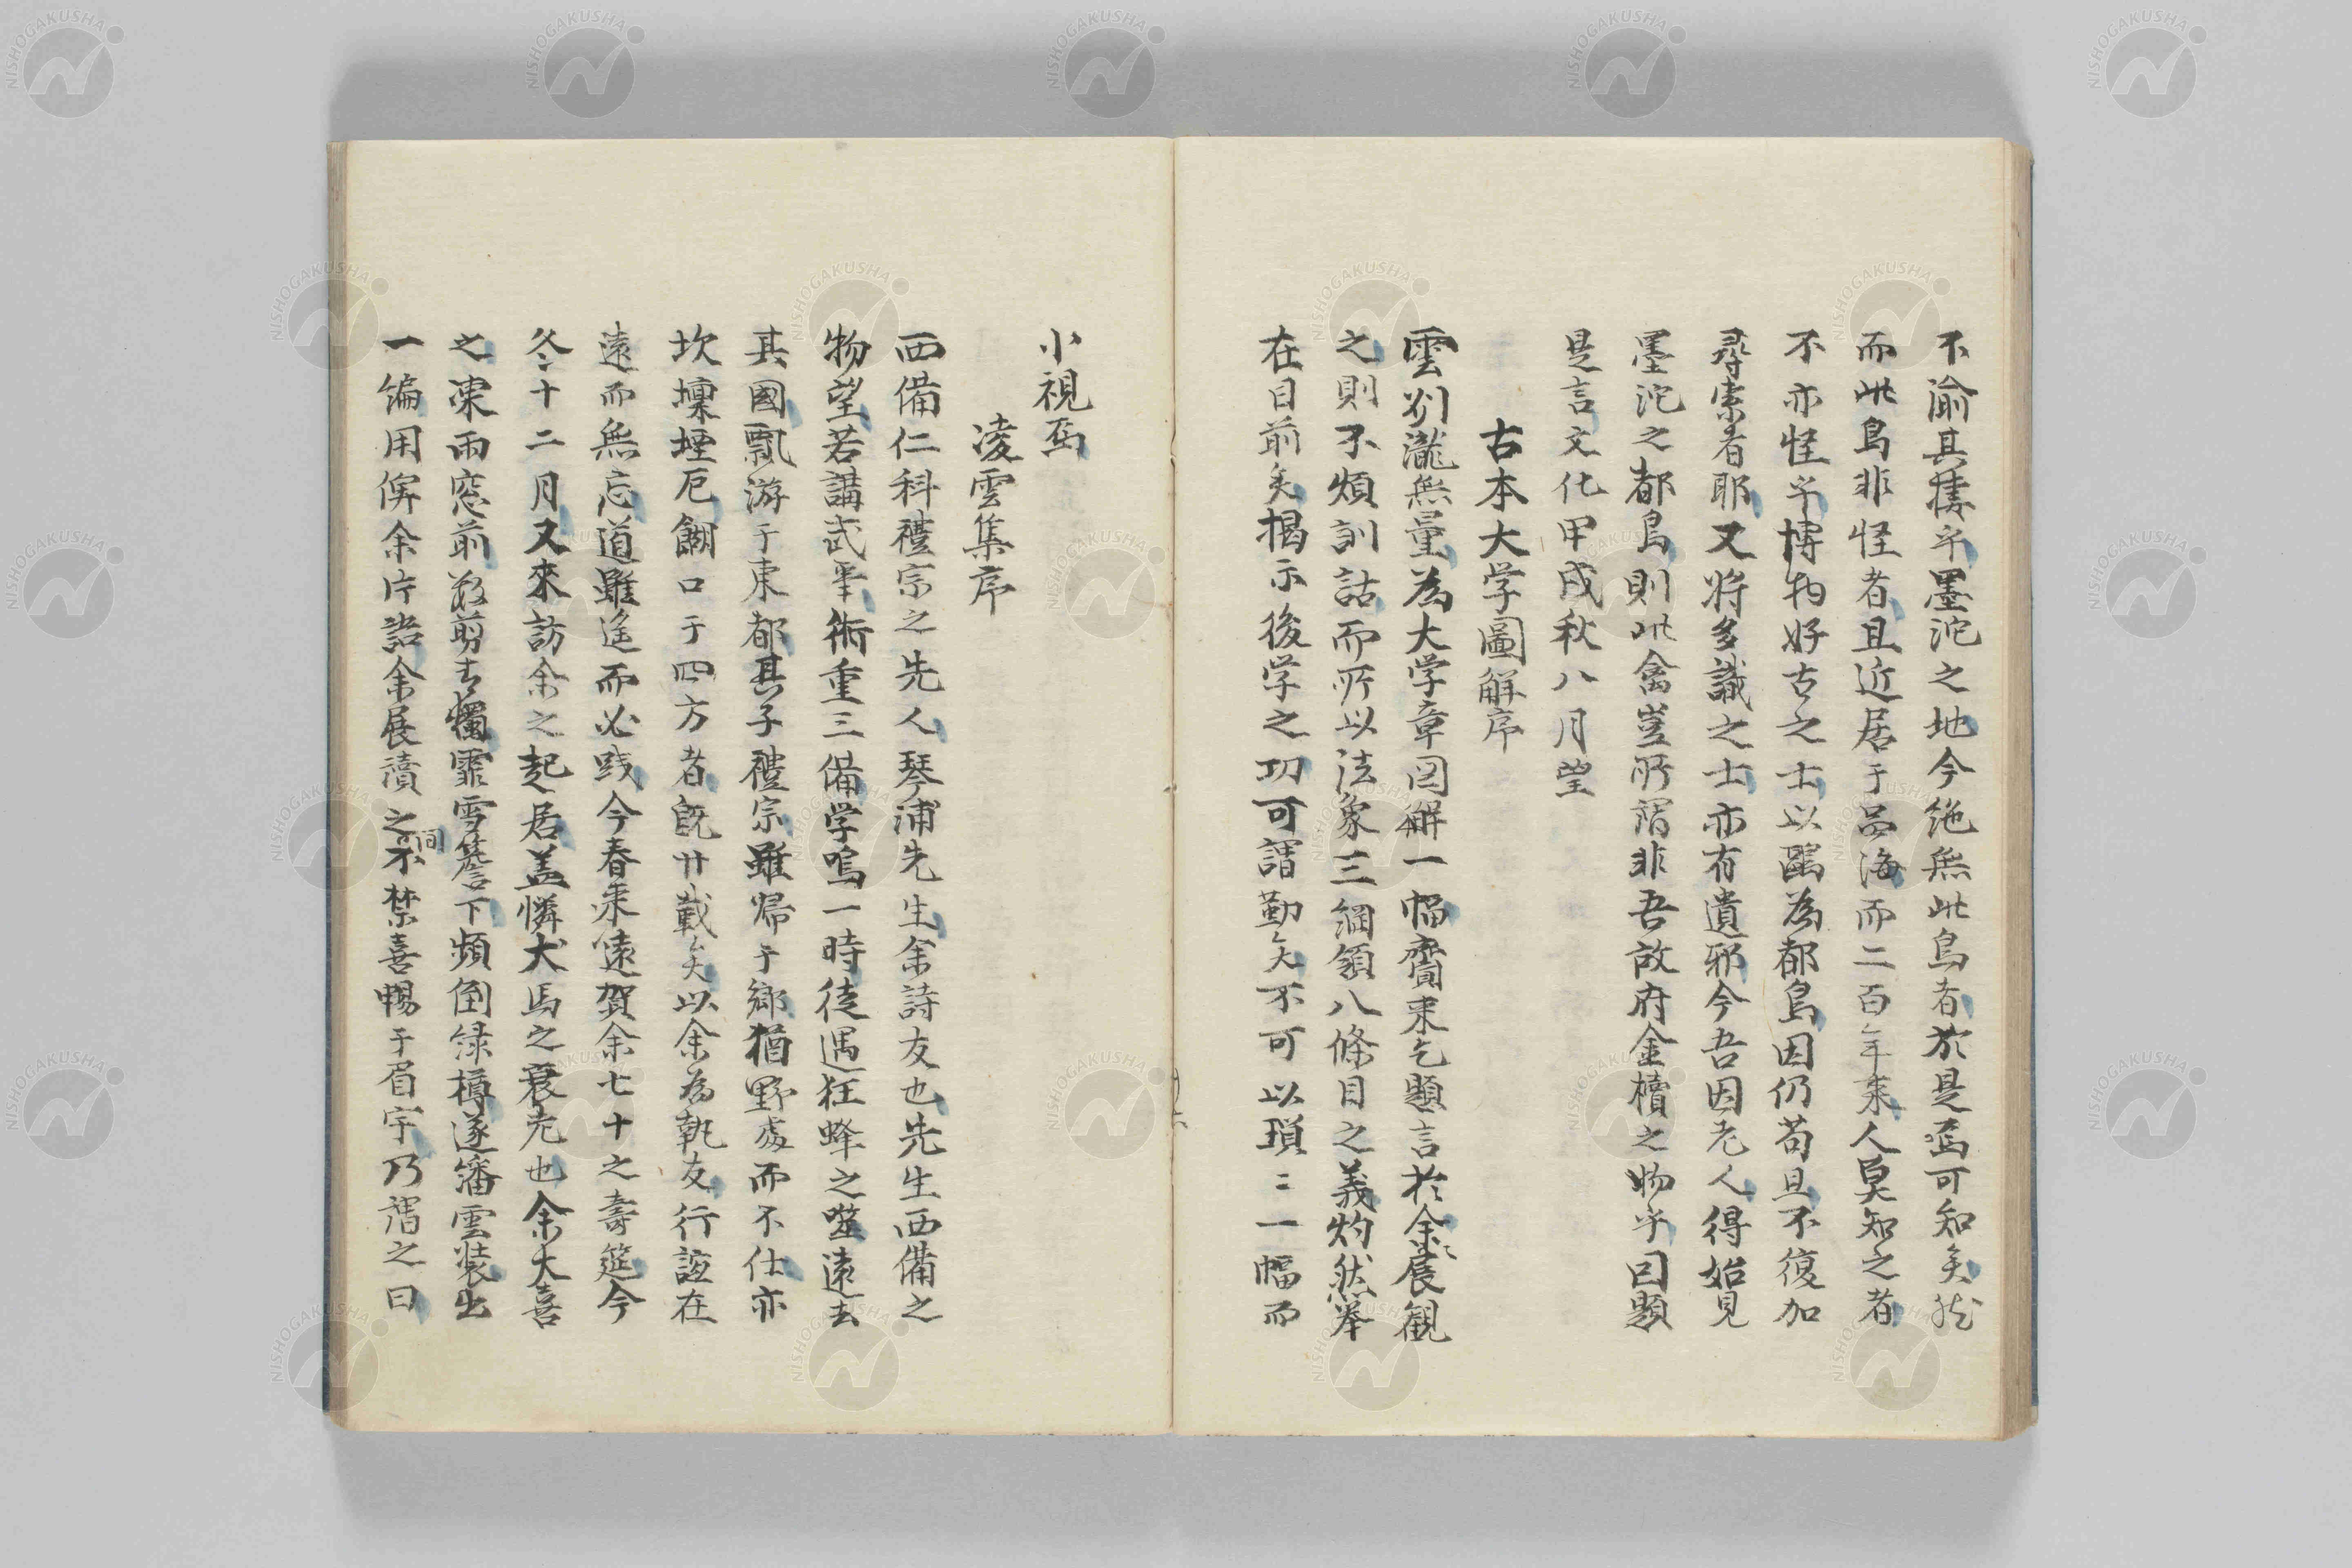 不渝其棲乎墨沱之地今絶無此鳥者於是焉可知矣然
而此鳥非怪者且近居于品海而二百年来人莫知之者
不亦怪乎博物好古之士以鷗為都鳥因仍苟且不復加
尋索者耶又将多識之士亦有遺邪今吾因老人得始見
墨沱之都鳥則此禽豈所謂非吾故府金櫝之物乎曰題
是言文化甲戌秋八月望
古本大学圖解序
雲州瀧無量為大学章図解一幅齎来乞題言於余展観
之則不煩訓詁而所以法象三綱領八條目之義灼然挙
在目前矣揭示後学之功可謂勤矣不可以瑣〻一幅而
小視焉
凌雲集序
西備仁科禮宗之先人琴浦先生余詩友也先生西備之
物望若講武筆術重三備学嗚一時徒遇狂蜂之噬遠去
其國飄游于東都其子禮宗雖帰于郷猶野處而不仕亦
坎壈堙厄餬口于四方者既廿載矣以余為執友行誼在
遠而無忘道雖遙而必践今春来遠賀余七十之壽筵今
冬十二月又來訪余之起居盖憐犬馬之衰老也余大喜
之凍雨窓前数剪古燭霏雪簷下頻倒緑樽遂繙雲装出
一編用俾余片語余展瀆之間不禁喜暢于眉宇乃謂之曰